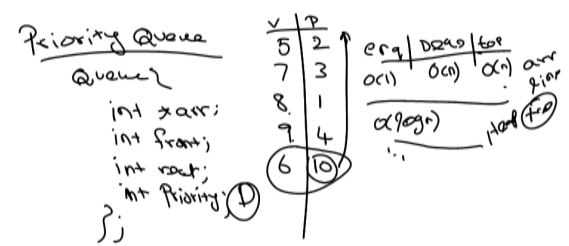 Priority Queue
Queue{
int *arr;
int front;
int rear;
int Priority;
};
V P
5 2
7 3
8 1
9 4
6 10
enq top
O(1) O(n) O(n) arr
O(logn) Heap tree